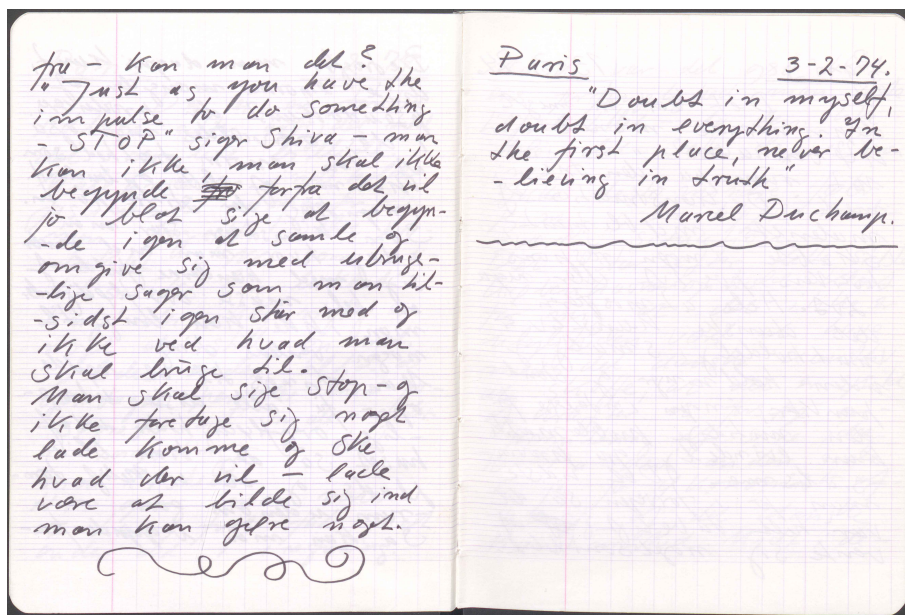 fra – kan man det?
"Just as you have the
impulse to do something
– STOP" siger Shiva – man
kan ikke, man skal ikke
begynde forfra det vil
jo blot sige at begyn-
-de igen at samle og
omgive sig med ubruge-
-lige sager som man til-
-sidst igen står med og
ikke ved hvad man
skal bruge til.
Man skal sige stop – og
ikke foretage sig noget
lade komme og ske
hvad der vil – lade
være at bilde sig ind
man kan gøre noget.
Paris 3-2-74.
"Doubt in myself,
doubt in everything. In
the first place, never be-
-lieving in truth"
Marcel Duchamp.